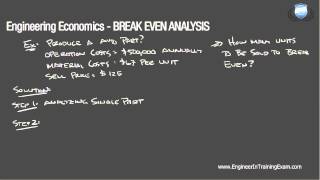 Engineering Economics - BREAK EVEN ANALYSIS
Ex: PRODUCE A PART?
OPERATION COSTS = $520,000 ANNUALLY
MATERIAL COSTS = $67 PER UNIT
SELL PRICE = $125
→ HOW MANY UNITS
TO BE SOLD TO BREAK
EVEN?
SOLUTION:
STEP 1: ANALYZING SINGLE PART
STEP 2:
www.EngineerInTrainingExam.com